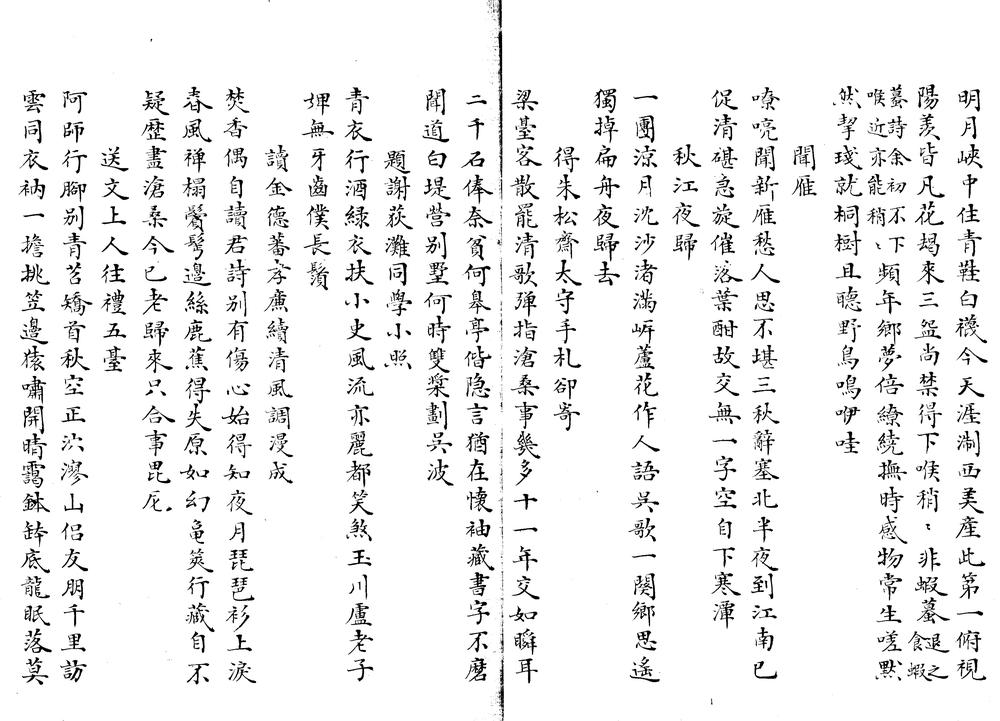 明月峽中住青鞋白襪今天涯淛西美產此第一俯視
陽羨皆凡花朅來三盌尚禁得下喉稍〻非蝦蟇退之食蝦
蟇詩余初不下喉近亦能稍〻頻年鄉夢倍繚繞撫時感物常生嗟默
然挈琖就桐樹且聽野鳥鳴咿哇
聞雁
嘹喨聞新雁愁人思不堪三秋辭塞北半夜到江南已
促清碪急旋催落葉酣故交無一字空自下寒潭
秋江夜歸
一團涼月沈沙渚滿㟁蘆花作人語吳歌一闋鄉思遙
獨掉扁舟夜歸去
得朱松齋太守手札卻寄
梁臺客散罷清歌彈指滄桑事幾多十一年交如瞬耳
二千石俸奈貧何皋亭偕隐言猶在懷袖藏書字不磨
聞道白堤營别墅何時雙槳劃吳波
題謝荻灘同學小照
青衣行酒綠衣扶小史風流亦麗都笑煞玉川盧老子
婢無牙齒僕長鬚
讀金德蕃孝廉續清風調漫成
焚香偶自讀君詩别有傷心始得知夜月琵琶衫上淚
春風禅榻鬢邊絲鹿蕉得失原如幻龜筴行藏自不
疑歷盡滄桑今已老歸來只合事毘尼
送文上人往禮五臺
阿師行腳别青苔矯首秋空正泬漻山侣友朋千里訪
雲同衣衲一擔挑笠邊猿嘯開晴靄鉢底龍眠落莫